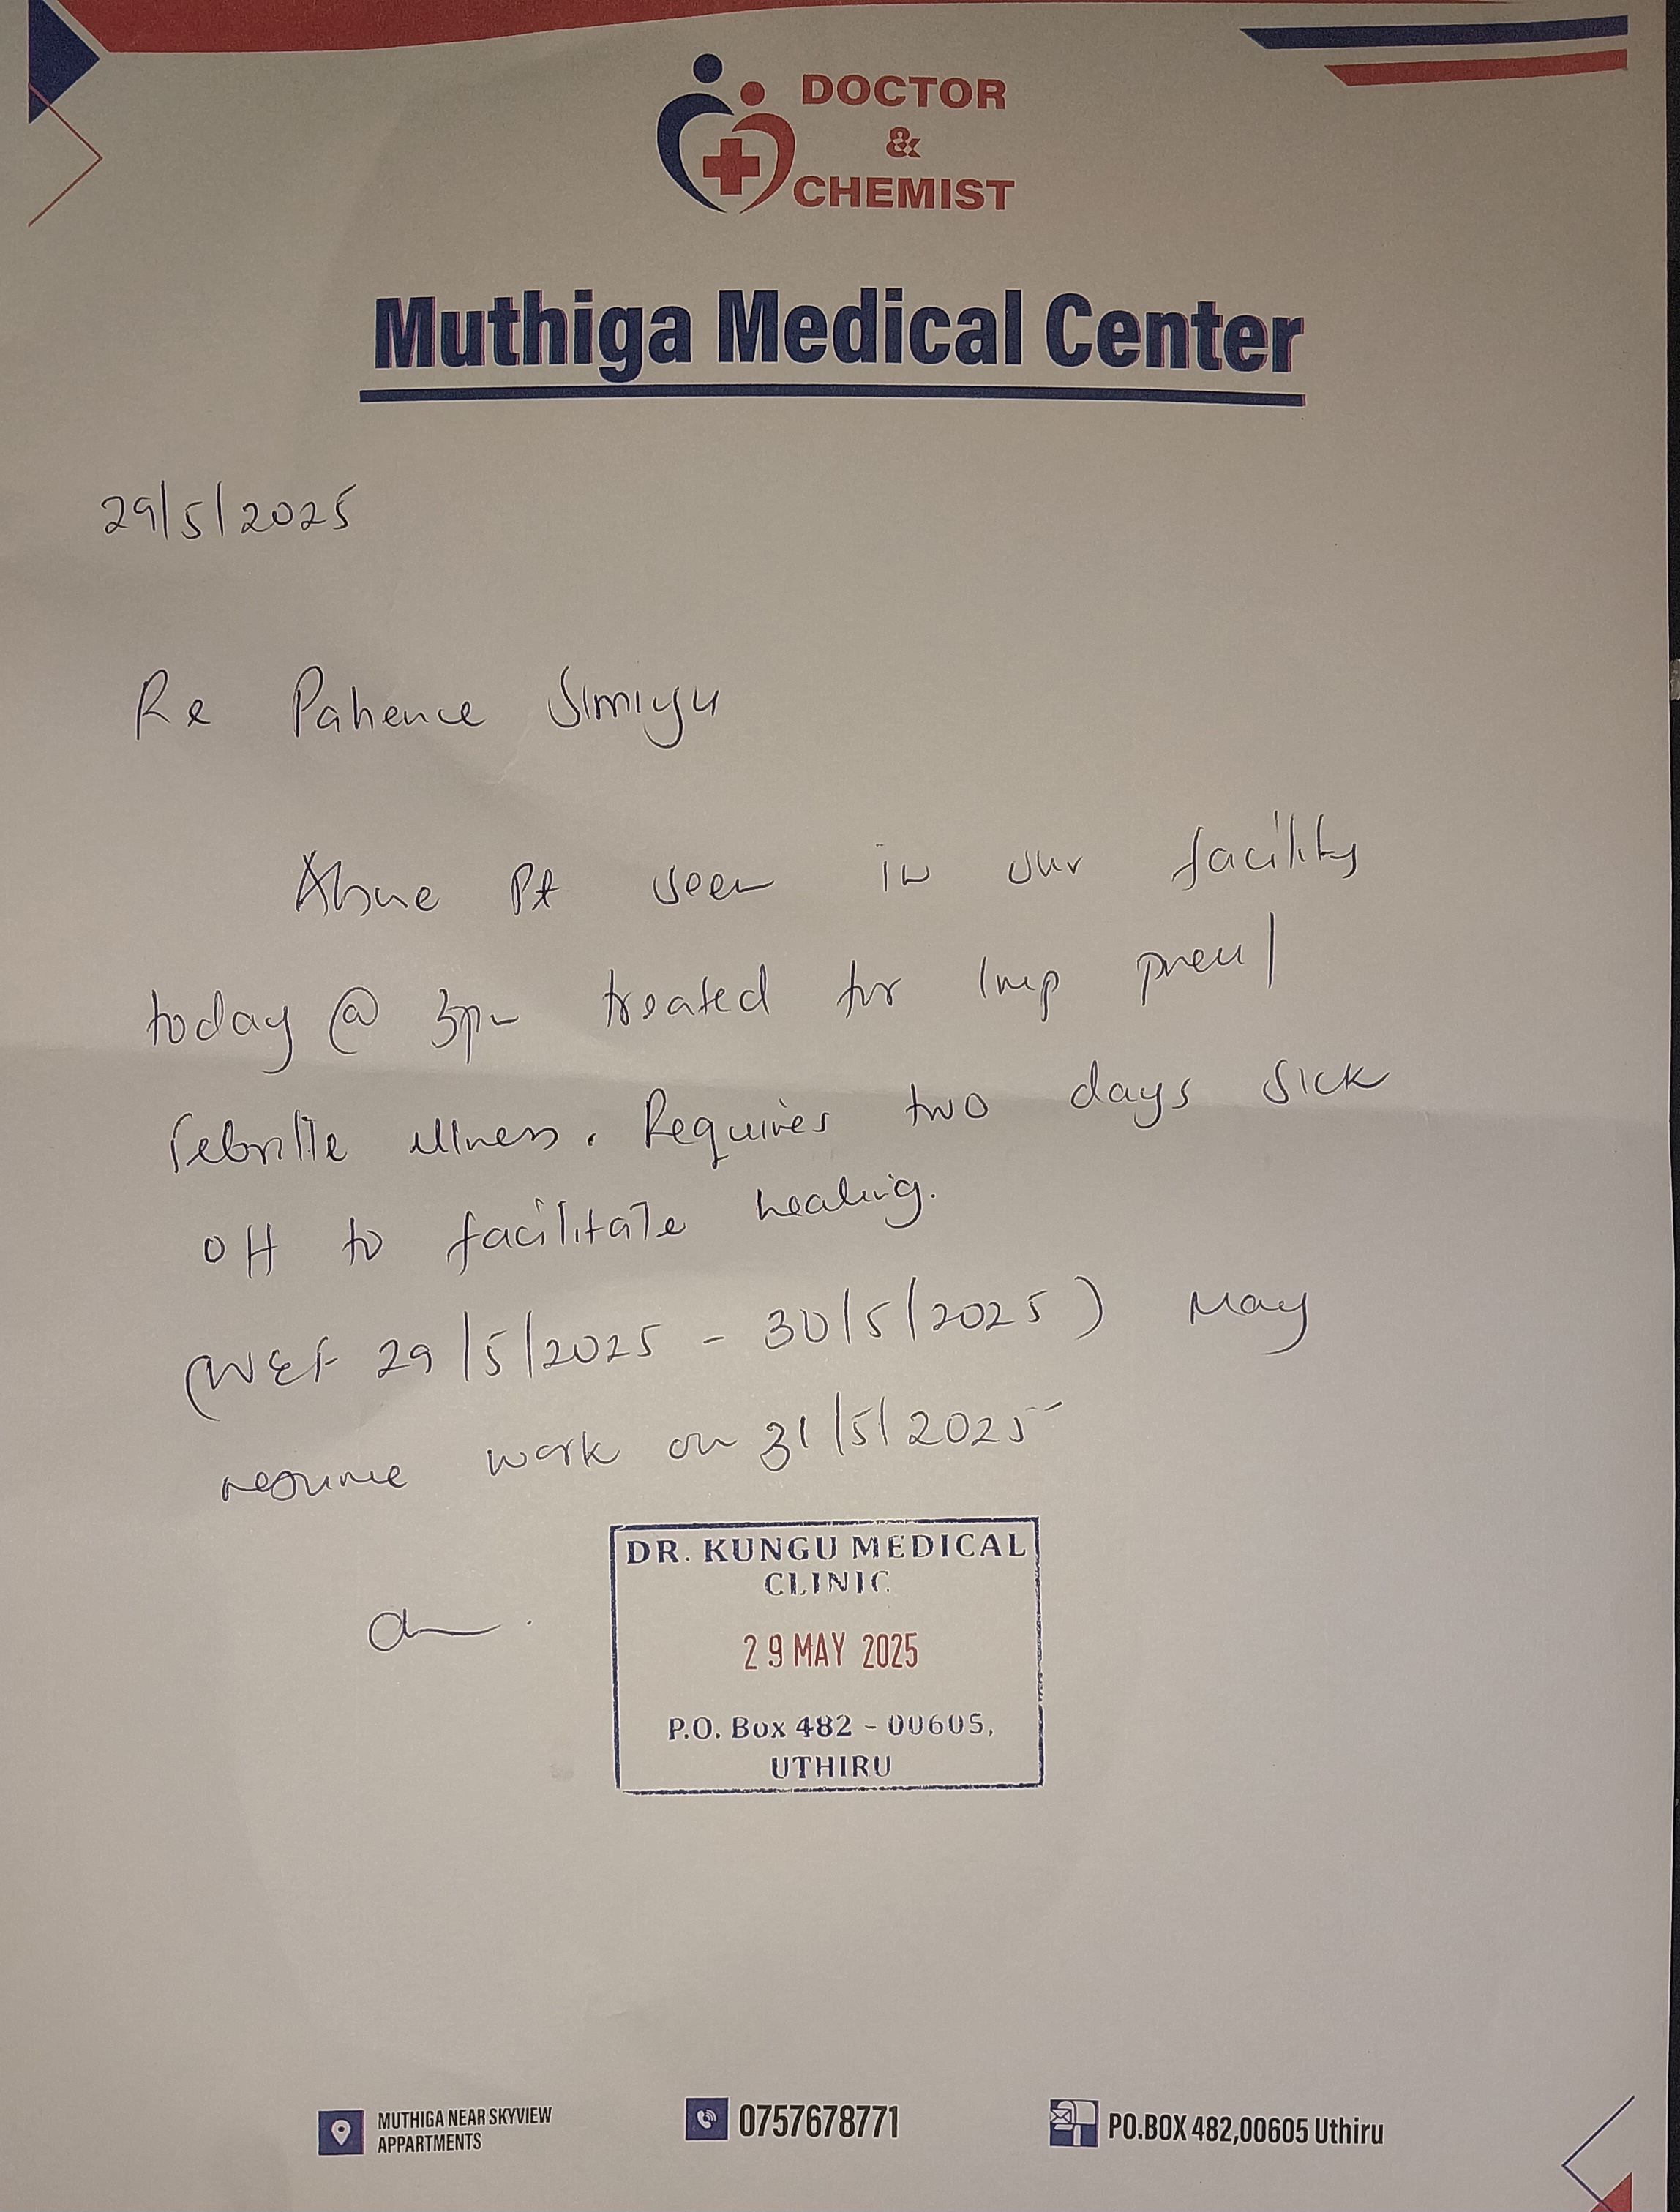 DOCTOR
&
CHEMIST
Muthiga Medical Center
29/5/2025
Re Patience Simiyu
Above Pt seen in our facility
today @ 3pm treated for Imp pneu/
febrile illness. Requires two days sick
off to facilitate healing.
(WEF 29/5/2025 - 30/5/2025) May
resume work on 31/5/2025
DR. KUNGU MEDICAL
CLINIC
29 MAY 2025
P.O. Box 482 - 00605,
UTHIRU
MUTHIGA NEAR SKYVIEW
APPARTMENTS
0757678771
PO.BOX 482,00605 Uthiru